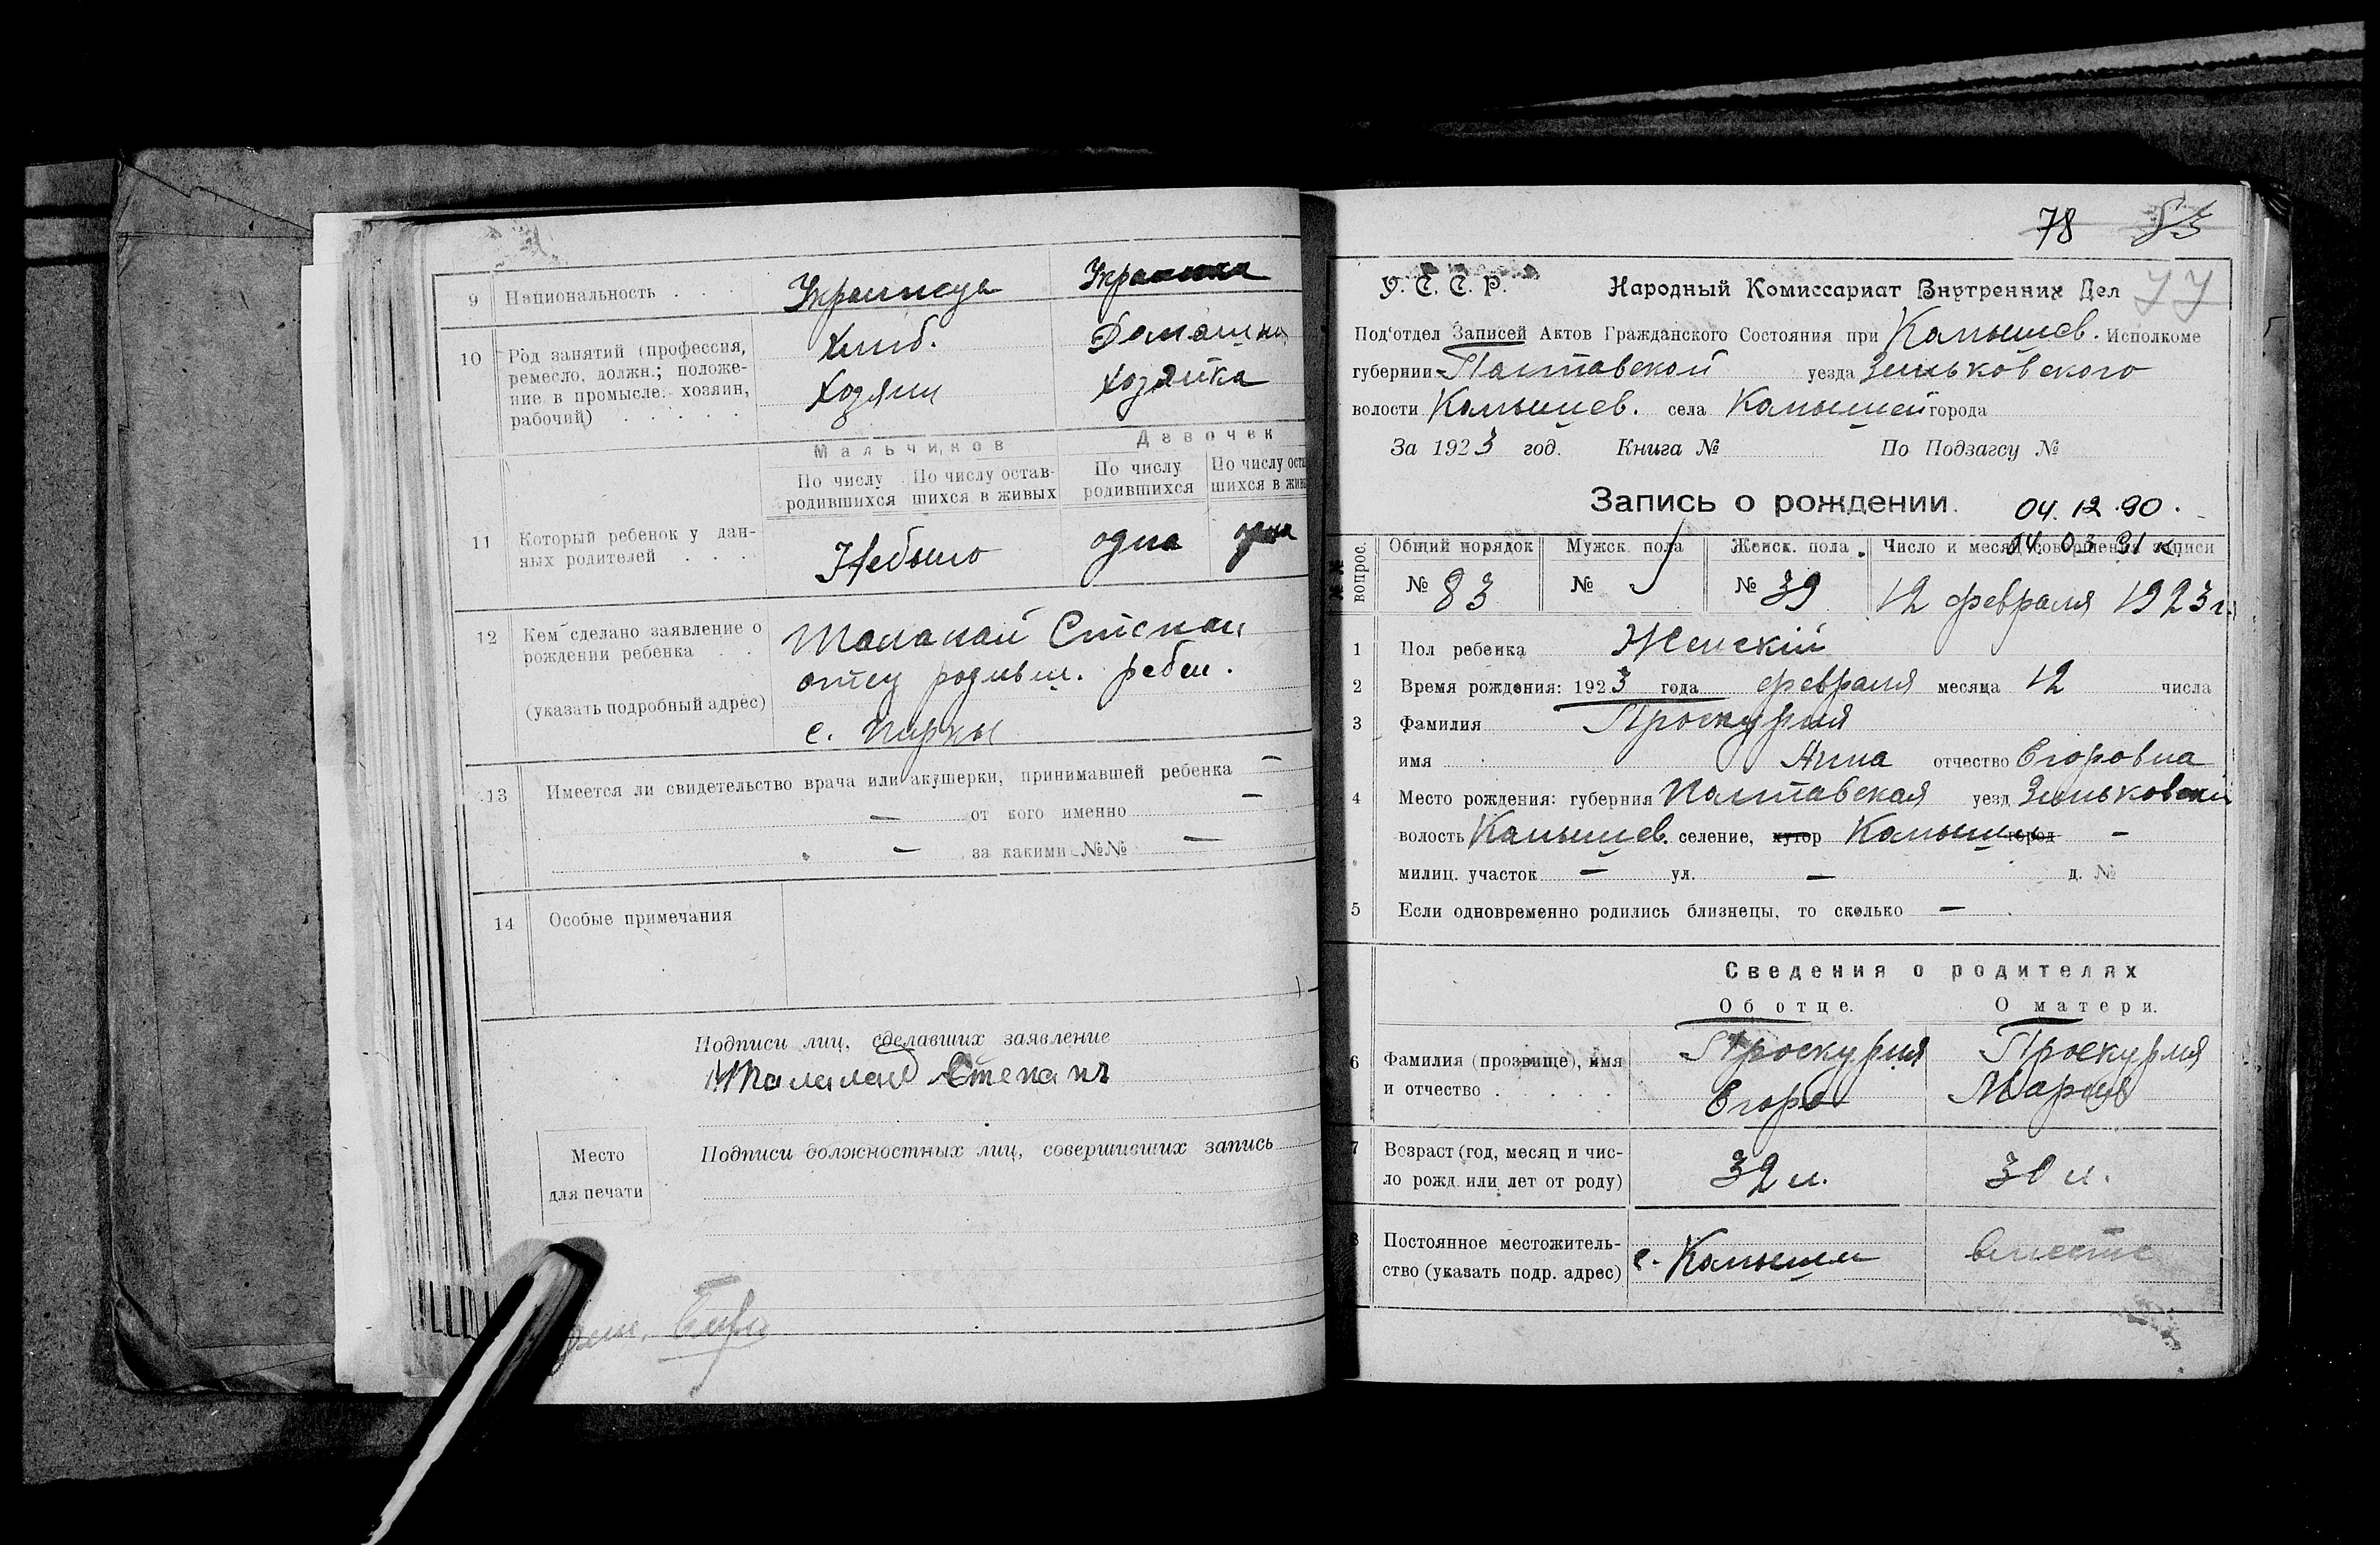 9 Национальность . . . Украинец Украинка
10 Род занятий (профессия, Хлиб. Домашня
ремесло, должн.; положе-
ние в промысле: хозяин, Хозяин Хозяйка
рабочий) . . . . .
Мальчиков Девочек
По числу По числу остав- По числу По числу оста
родившихся шихся в живых родившихся шихся в жив
11 Который ребенок у дан-
ных родителей . . . Небыло одна одна
12 Кем сделано заявление о
рождении ребенка . . Степан
отец родивш. ребен.
(указать подробный адрес)
с. Пирки
13 Имеется ли свидетельство врача или акушерки, принимавшей ребенка —
— от кого именно —
— за какими №№ —
14 Особые примечания
Подписи лиц, сделавших заявление
Степанъ
Место
для печати
Подписи должностных лиц, совершивших запись
78 83
77
У. С. С. Р. Народный Комиссариат Внутренних Дел
Под‘отдел Записей Актов Гражданского Состояния при Камышев. Исполкоме
губернии Полтавской уезда Зиньковского
волости Камышев. села Камышей города
За 1923 год. Книга № По Подзагсу №
Запись о рождении. 04.12.90.
04.03.91
№№ вопрос. Общий порядок Мужск. пола Женск. пола. Число и месяц совершения записи
№ 83 № № 39 12 февраля 1923 г.
1 Пол ребенка Женскій
2 Время рождения: 1923 года февраля месяца 12 числа
3 Фамилия Проскурня
имя Анна отчество Егоровна
4 Место рождения: губерния Полтавская уезд Зиньковский
волость Камышев. селение, хутор Камыши город —
милиц. участок — ул. — д. №
5 Если одновременно родились близнецы, то сколько —
Сведения о родителях
Об отце. О матери.
6 Фамилия (прозвище), имя Проскурня Проскурня
и отчество . . . . . Егор Мария
7 Возраст (год, месяц и чис-
ло рожд. или лет от роду) 32 л. 30 л.
8 Постоянное местожитель-
ство (указать подр. адрес) с. Камыши вместе